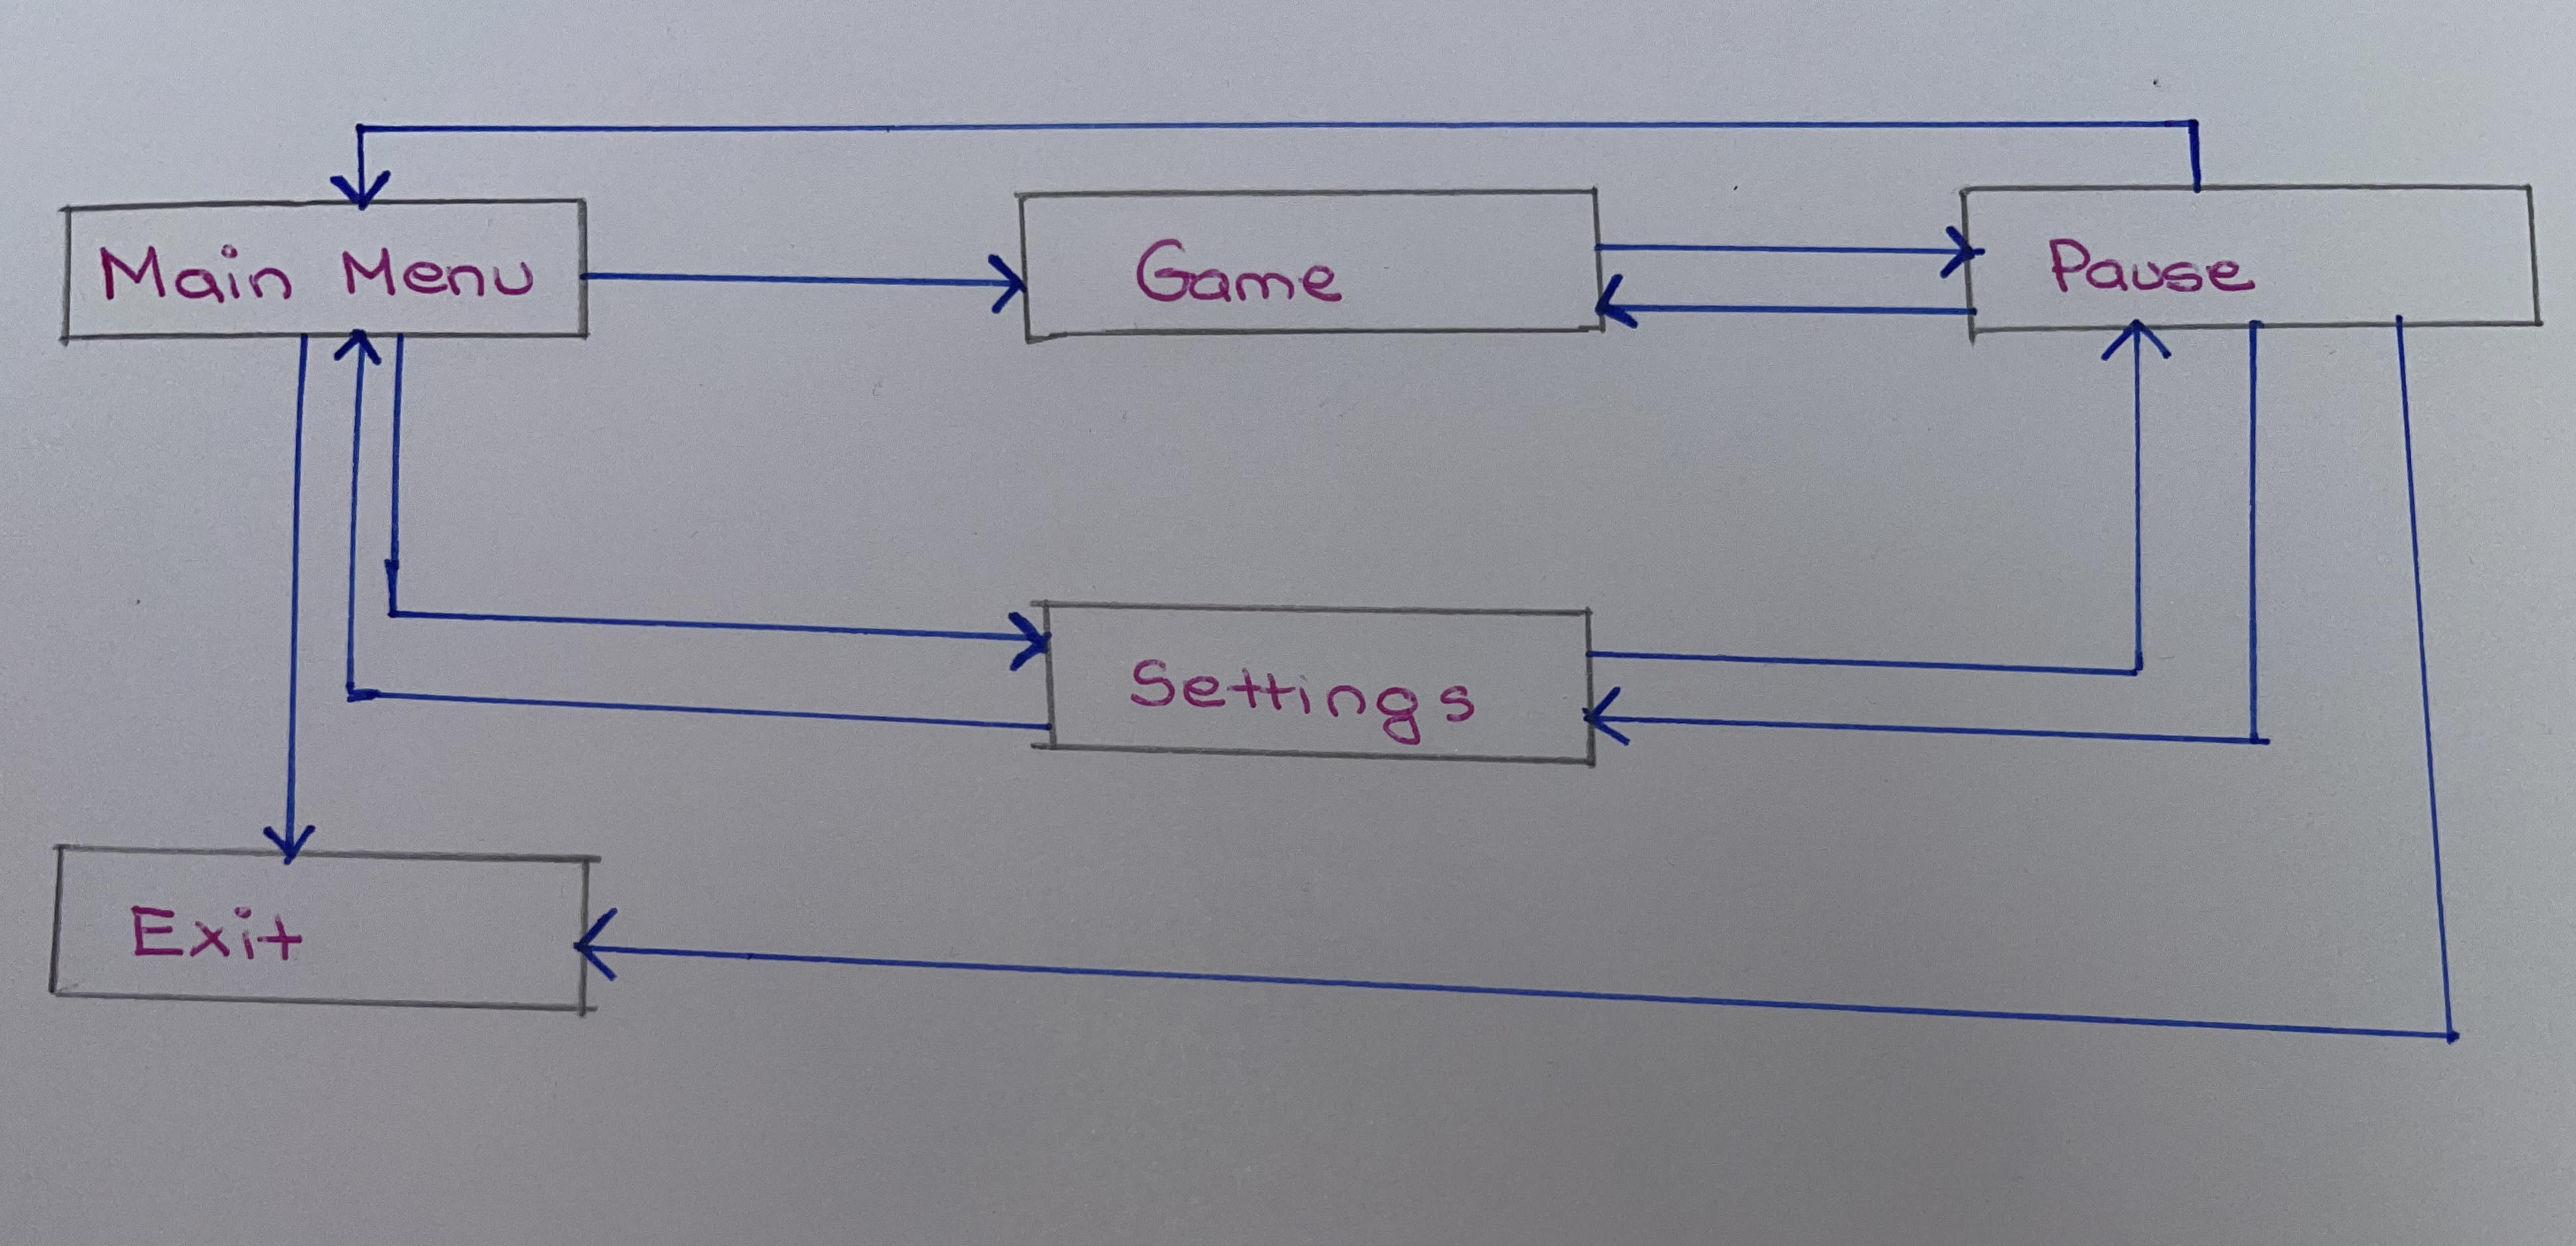 Main Menu
Game
Pause
Settings
Exit